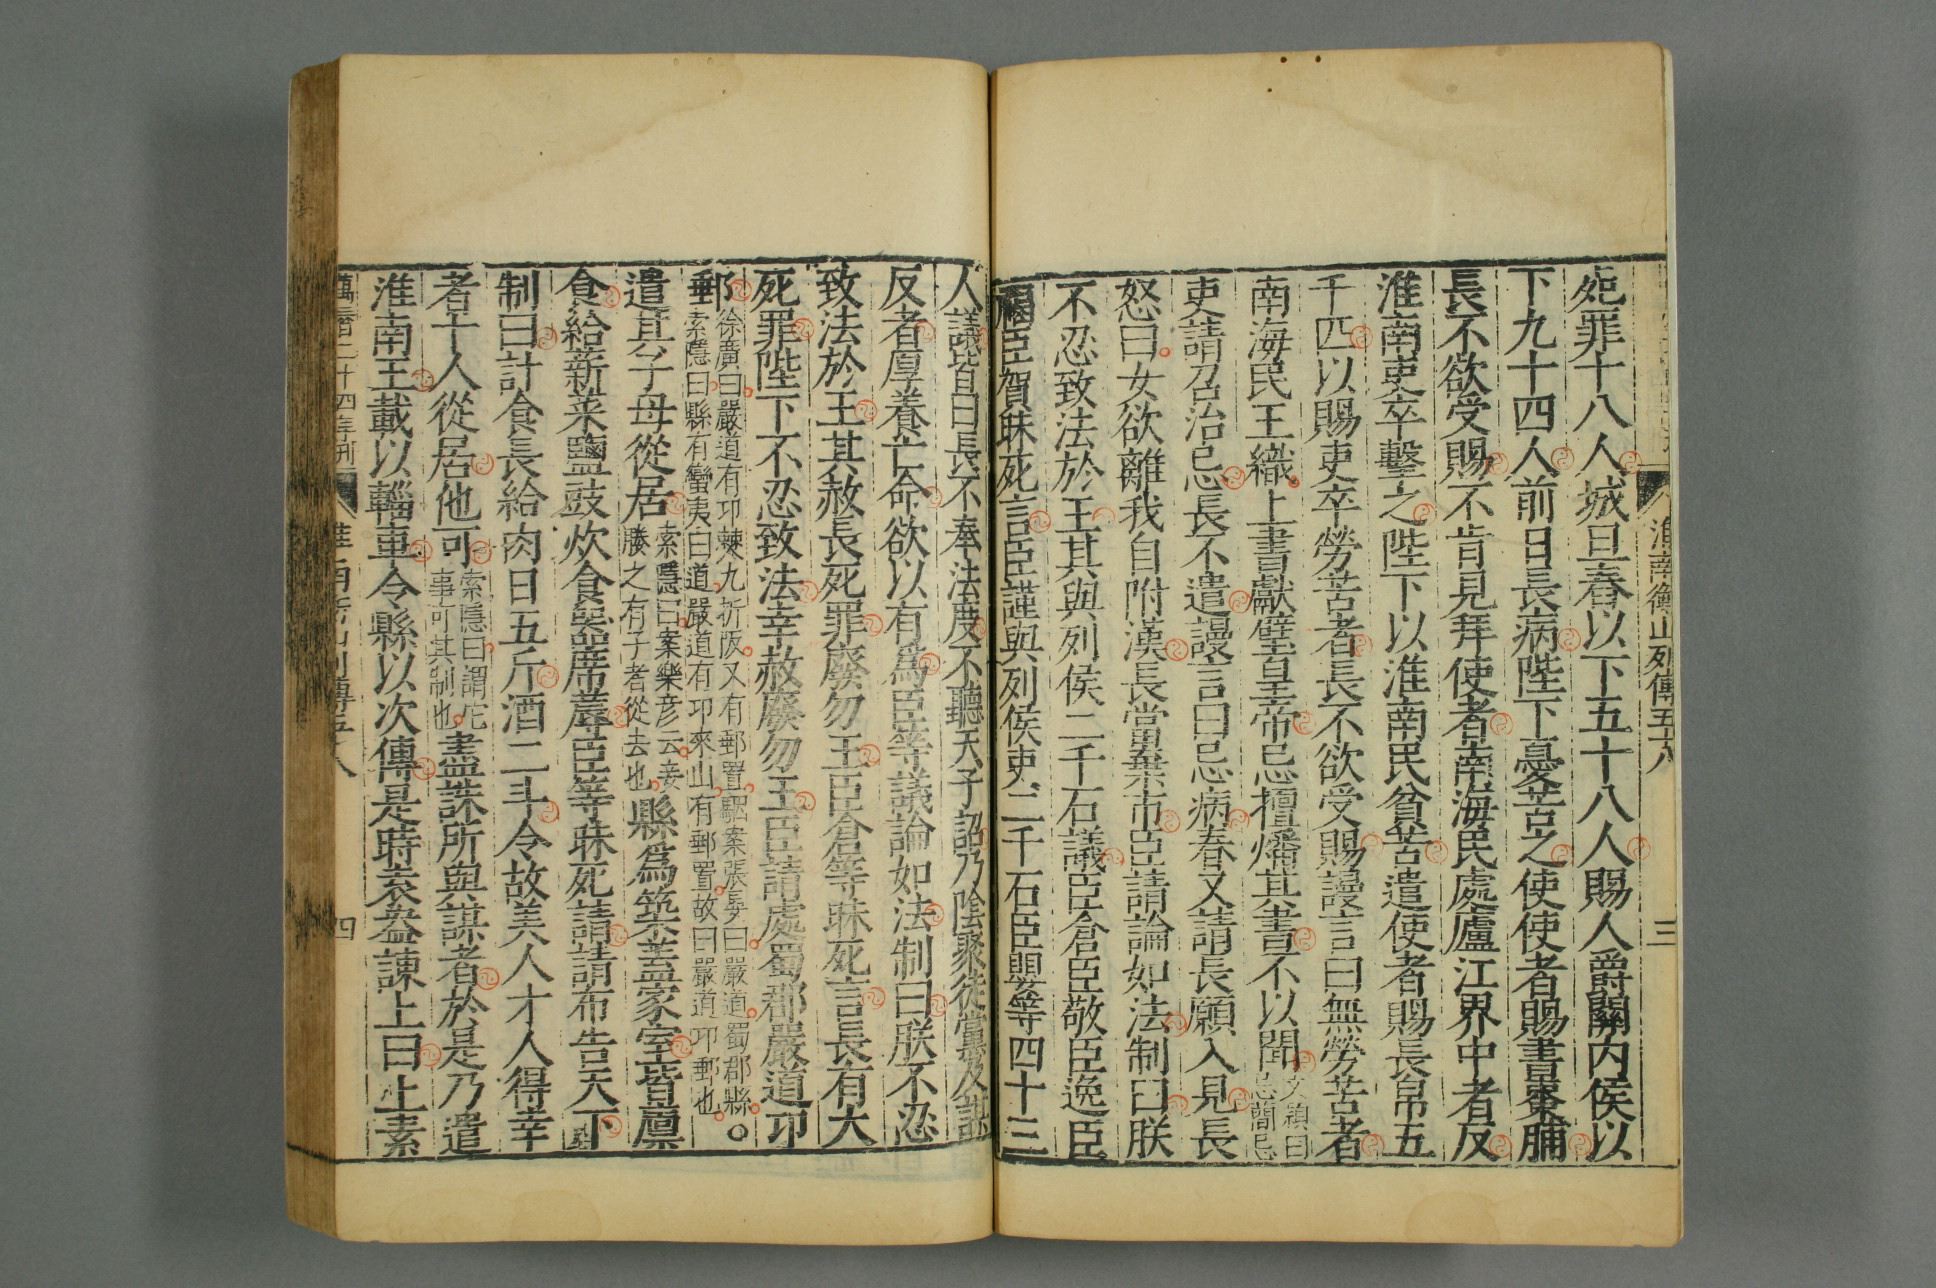 淮南衡山列傳五十八
三
死罪十八人城旦舂以下五十八人賜人爵關内侯以
下九十四人前日長病陛下憂苦之使使者賜書棗脯
長不欲受賜不肯見拜使者南海民處廬江界中者反
淮南吏卒擊之陛下以淮南民貧苦遣使者賜長帛五
千匹以賜吏卒勞苦者長不欲受賜謾言曰無勞苦者
南海民王織上書獻璧皇帝忌擅燔其書不以聞文穎曰
忌蕳忌
吏請召治忌長不遣謾言曰忌病春又請長願入見長
怒曰女欲離我自附漢長當棄市臣請論如法制曰朕
不忍致法於王其與列侯二千石議臣倉臣敬臣逸臣
福臣賀昧死言臣謹與列侯吏二千石臣嬰等四十三
人議皆曰長不奉法度不聽天子詔乃陰聚徒黨及謀
反者厚養亡命欲以有爲臣等議論如法制曰朕不忍
致法於王其赦長死罪廢勿王臣倉等昧死言長有大
死罪陛下不忍致法幸赦廢勿王臣請處蜀郡嚴道卭
郵徐廣曰嚴道有卭僰九折阪又有郵置駰案張晏曰嚴道蜀郡縣
索隱曰縣有蠻夷曰道嚴道有卭來山有郵置故曰嚴道卭郵也
遣其子母從居索隱曰案樂彦云妾
媵之有子者從去也縣爲築蓋家室皆廪
食給薪菜鹽豉炊食器席蓐臣等昧死請請布告天下
制曰計食長給肉日五斤酒二斗令故美人才人得幸
者十人從居他可索隱曰謂他
事可其制也盡誅所與謀者於是乃遣
淮南王載以輜車令縣以次傳是時袁盎諫上曰上素
萬曆二十四年刊
淮南衡山列傳五十八
四